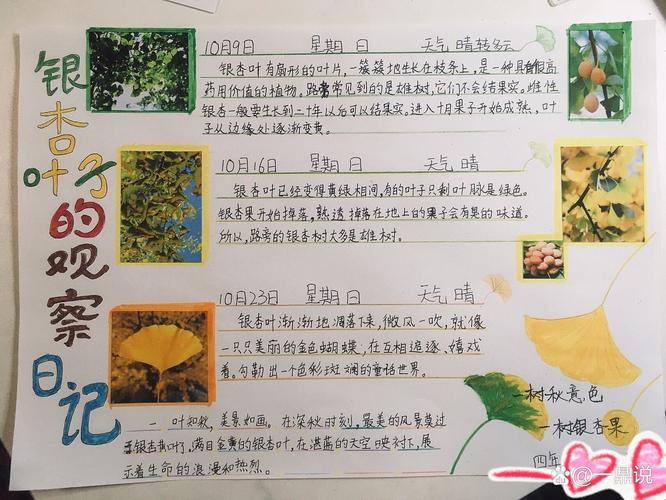 银杏叶子的观察日记
10月9日 星期日 天气 晴转多云
银杏叶有扇形的叶片,一簇簇地生长在枝条上,是一种具有很高
药用价值的植物。路旁常见到的是雄树,它们不会结果实。雌性
银杏一般要生长到二十年以后可以结果实。进入十月果子开始成熟,叶
子从边缘处逐渐变黄。
10月16日 星期日 天气 晴
银杏叶已经变得黄绿相间,有的叶子只剩叶脉是绿色。
银杏果开始掉落,熟透掉落在地上的果子会有臭的味道。
所以,路旁的银杏树大多是雄树。
10月23日 星期日 天气 晴
银杏叶渐渐地凋落下来,微风一吹,就像
一只只美丽的金色蝴蝶,在互相追逐、嬉戏
着。勾勒出一个色彩斑斓的童话世界。
一叶知秋,美景如画。在深秋时刻,最美的风景莫过
于银杏黄叶了,满目金黄的银杏叶,在湛蓝的天空映衬下,展
示着生命的浪漫和热烈。
一树秋意色
一树银杏果
四年